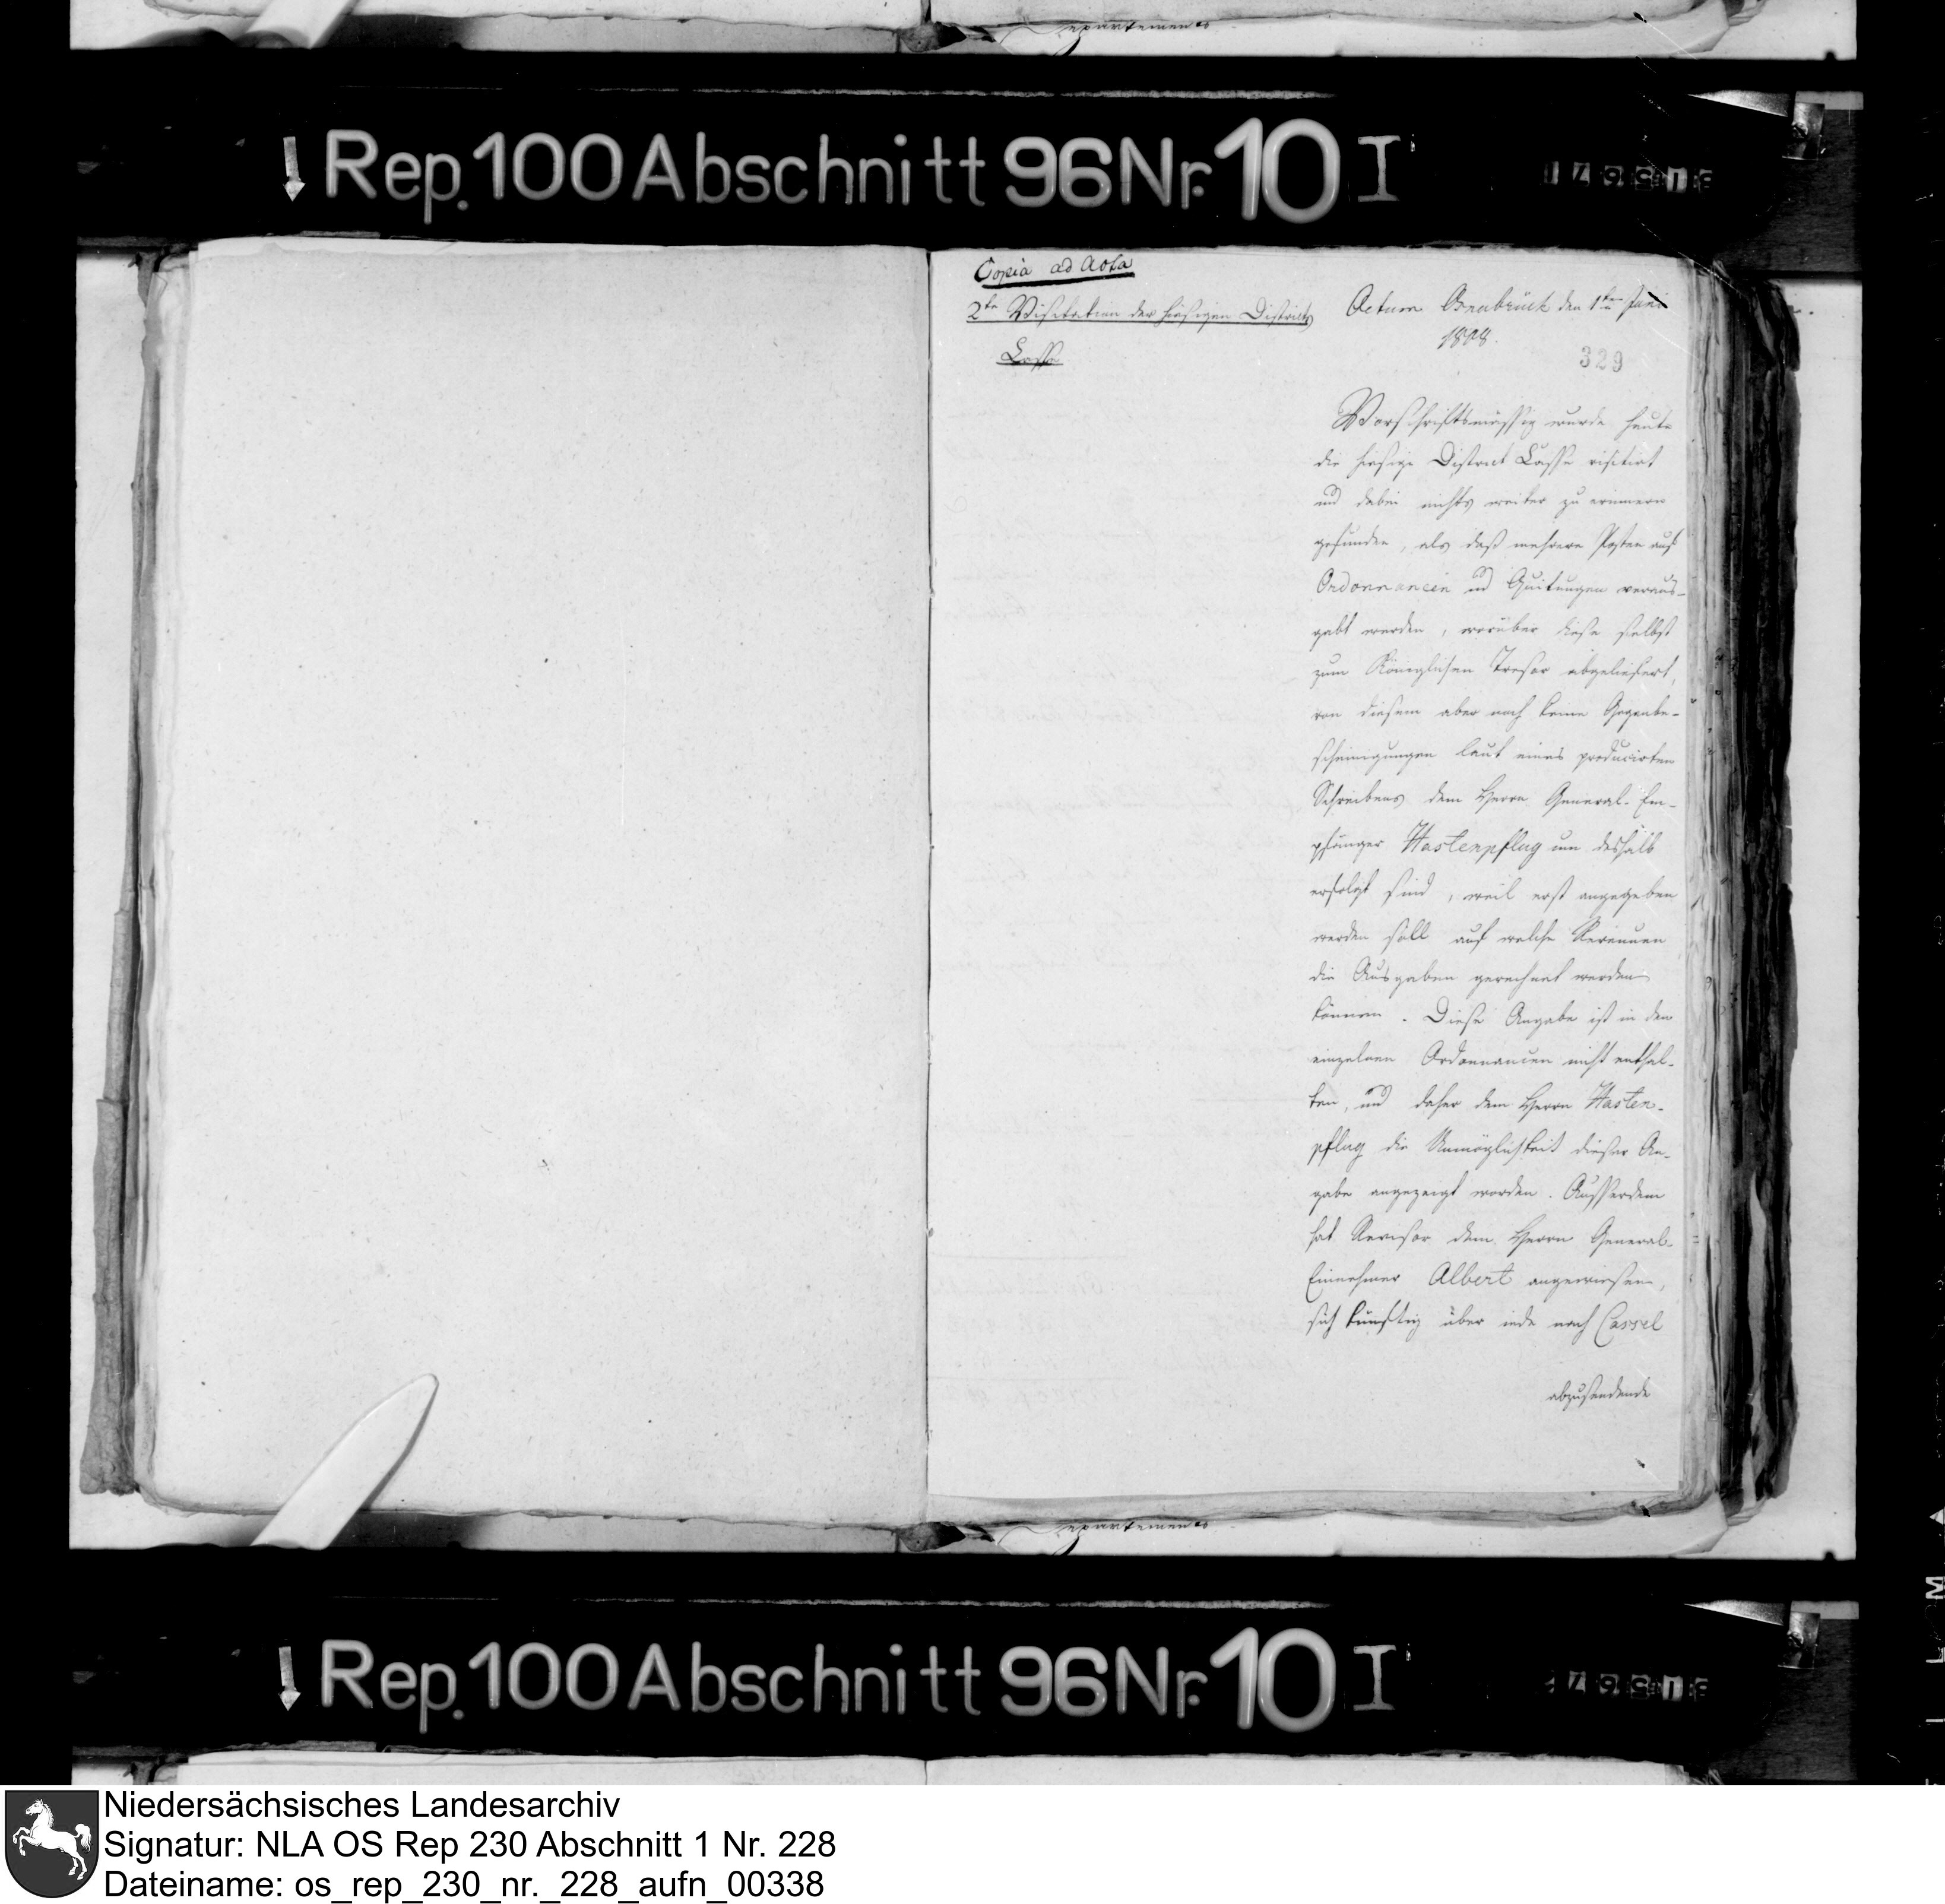 epartements
Rep. 100 Abschnitt 96 Nr. 10 I
Copia ad Acta
2te Visitation der hiesigen Districts
Casse
Actum Osnabrück den 1ten Juni
1808.
329
Vorschriftsmässig wurde heute
die hiesige District Casse visitirt
und dabei nichts weiter zu erinnern
gefunden, als daß mehrere Posten auf
Ordonnancen und Quitungen veraus-
gabt werden, worüber diese selbst
zum Königlichen Tresor abgeliefert,
von diesem aber noch keine Gegenbe-
scheinigungen laut eines producirten
Schreibens dem Herrn General-Em-
pfänger Hastenpflug um deshalb
erfolgt sind, weil erst angegeben
werden soll auf welche Revenuen
die Ausgaben gerechnet werden
können. Diese Angabe ist in den
einzelnen Ordonnancen nicht enthal-
ten, und daher dem Herrn Hasten-
pflug die Unmöglichkeit dieser An-
gabe angezeigt worden. Ausserdem
hat Revisor dem Herrn General-
Einnehmer Albert angewiesen,
sich künftig über jede nach Cassel
abzusendende
epartements
Rep. 100 Abschnitt 96 Nr. 10 I
Niedersächsisches Landesarchiv
Signatur: NLA OS Rep 230 Abschnitt 1 Nr. 228
Dateiname: os_rep_230_nr._228_aufn_00338